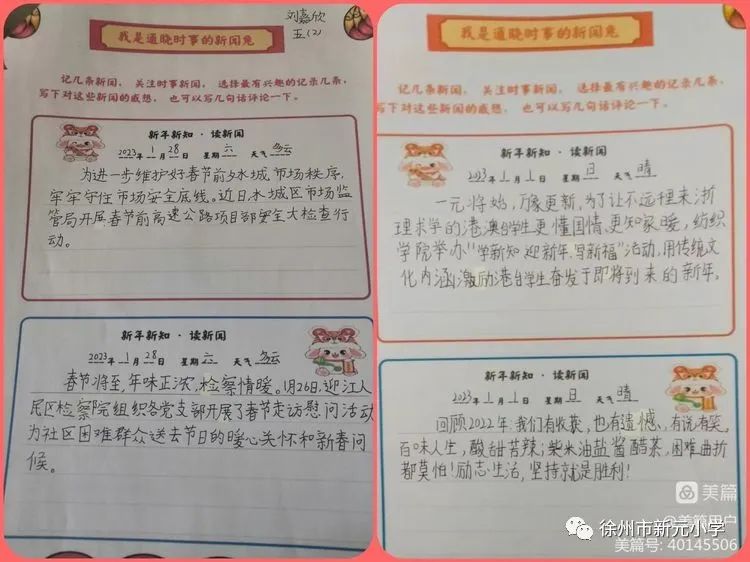 刘嘉欣
五(2)
我是通晓时事的新闻兔
记几条新闻， 关注时事新闻， 选择最有兴趣的记录几条，
写下对这些新闻的感想， 也可以写几句话评论一下。
新年新知 · 读新闻
2023年 1月 28日 星期 六 天气 多云
为进一步维护好春节前夕水城市场秩序，
牢牢守住市场安全底线。近日，水城区市场监
管局开展春节前高速公路项目部安全大检查行
动。
新年新知 · 读新闻
2023年 1月 28日 星期 六 天气 多云
春节将至，年味正浓，检察情暖。1月26日，迎江人
民区检察院组织各党支部开展了春节走访慰问活动
为社区困难群众送去节日的暖心关怀和新春问
候。
我是通晓时事的新闻兔
记几条新闻， 关注时事新闻， 选择最有兴趣的记录几条，
写下对这些新闻的感想， 也可以写几句话评论一下。
新年新知 · 读新闻
2023年 1月 1日 星期 日 天气 晴
一元将始，万象更新，为了让不远千里来浙
理求学的港澳台学生更懂国情、更知家暖，纺织
学院举办"学新知 迎新年.写新福"活动，用传统文
化内涵激励港台学生奋发于即将到来的新年。
新年新知 · 读新闻
2023年 1月 1日 星期 日 天气 晴
回顾2022年：我们有收获，也有遗憾、有说有笑，
百味人生，酸甜苦辣；柴米油盐酱醋茶，困难曲折
都莫怕！励志生活，坚持就是胜利！
美篇
@美篇用户
徐州市新元小学
美篇号: 40145506